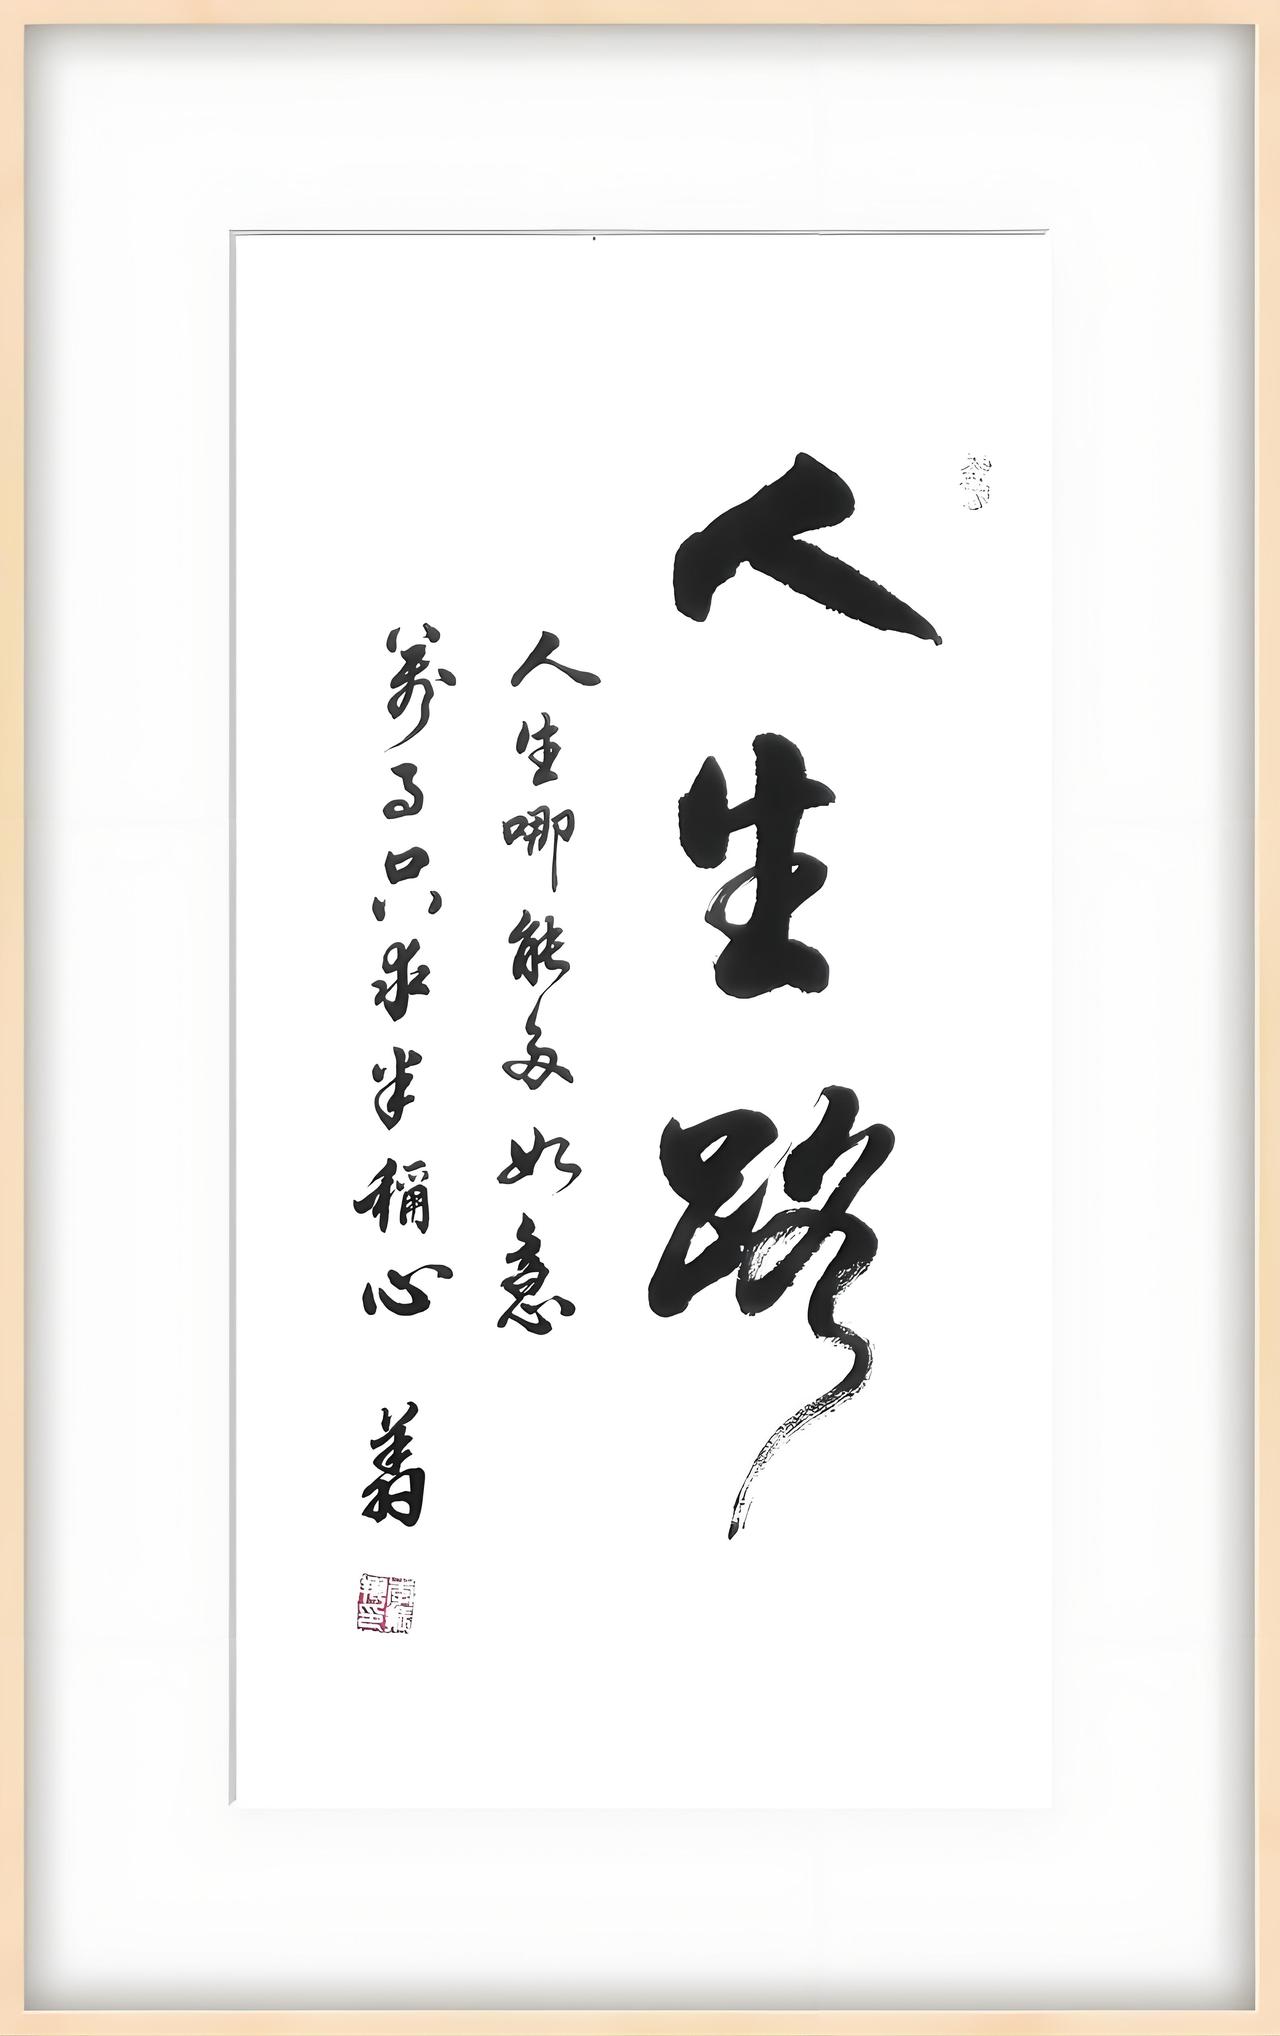 人生路
人生哪能多如意
萬事只求半稱心